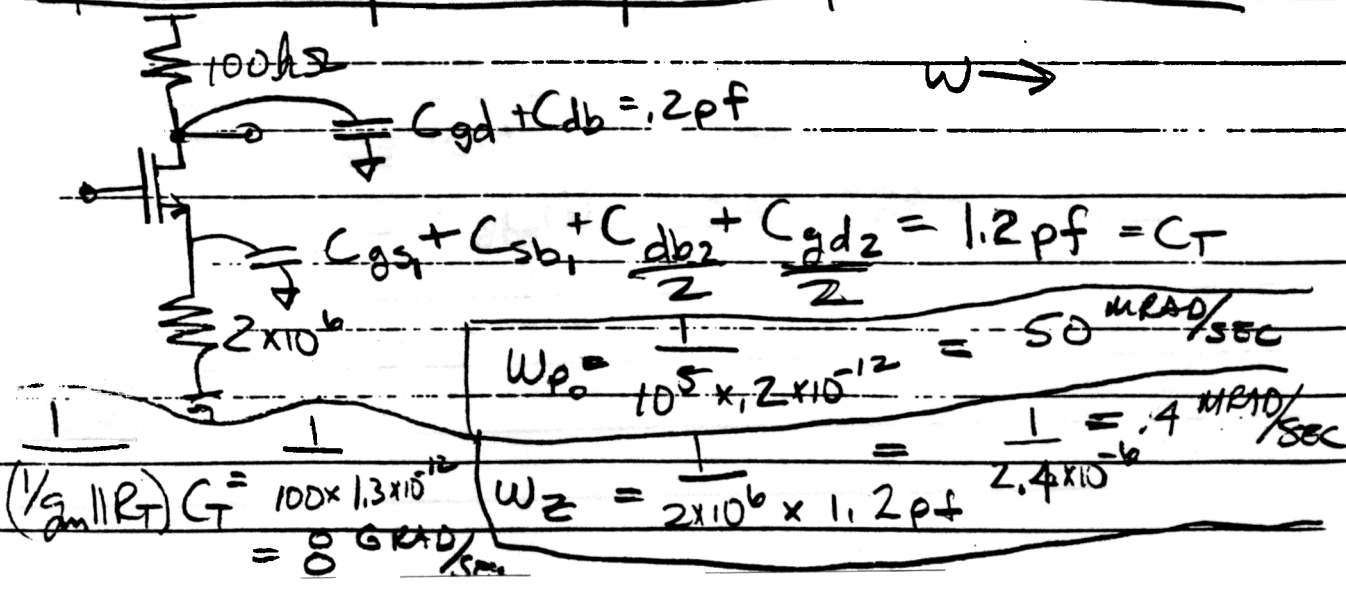 100kΩ
W →
Cgd + Cdb = .2pf
Cgs1 + Csb1 + Cdb2/2 + Cgd2/2 = 1.2pf = CT
2x10^6
Wp0 = 1/(10^5 x .2x10^-12) = 50 MRAD/SEC
WZ = 1/(2x10^6 x 1.2pf) = 1/(2.4x10^-6) = .4 MRAD/SEC
1/((1/gm||RT) CT) = 1/(100x 1.3x10^-12)
= 8 GRAD/sec